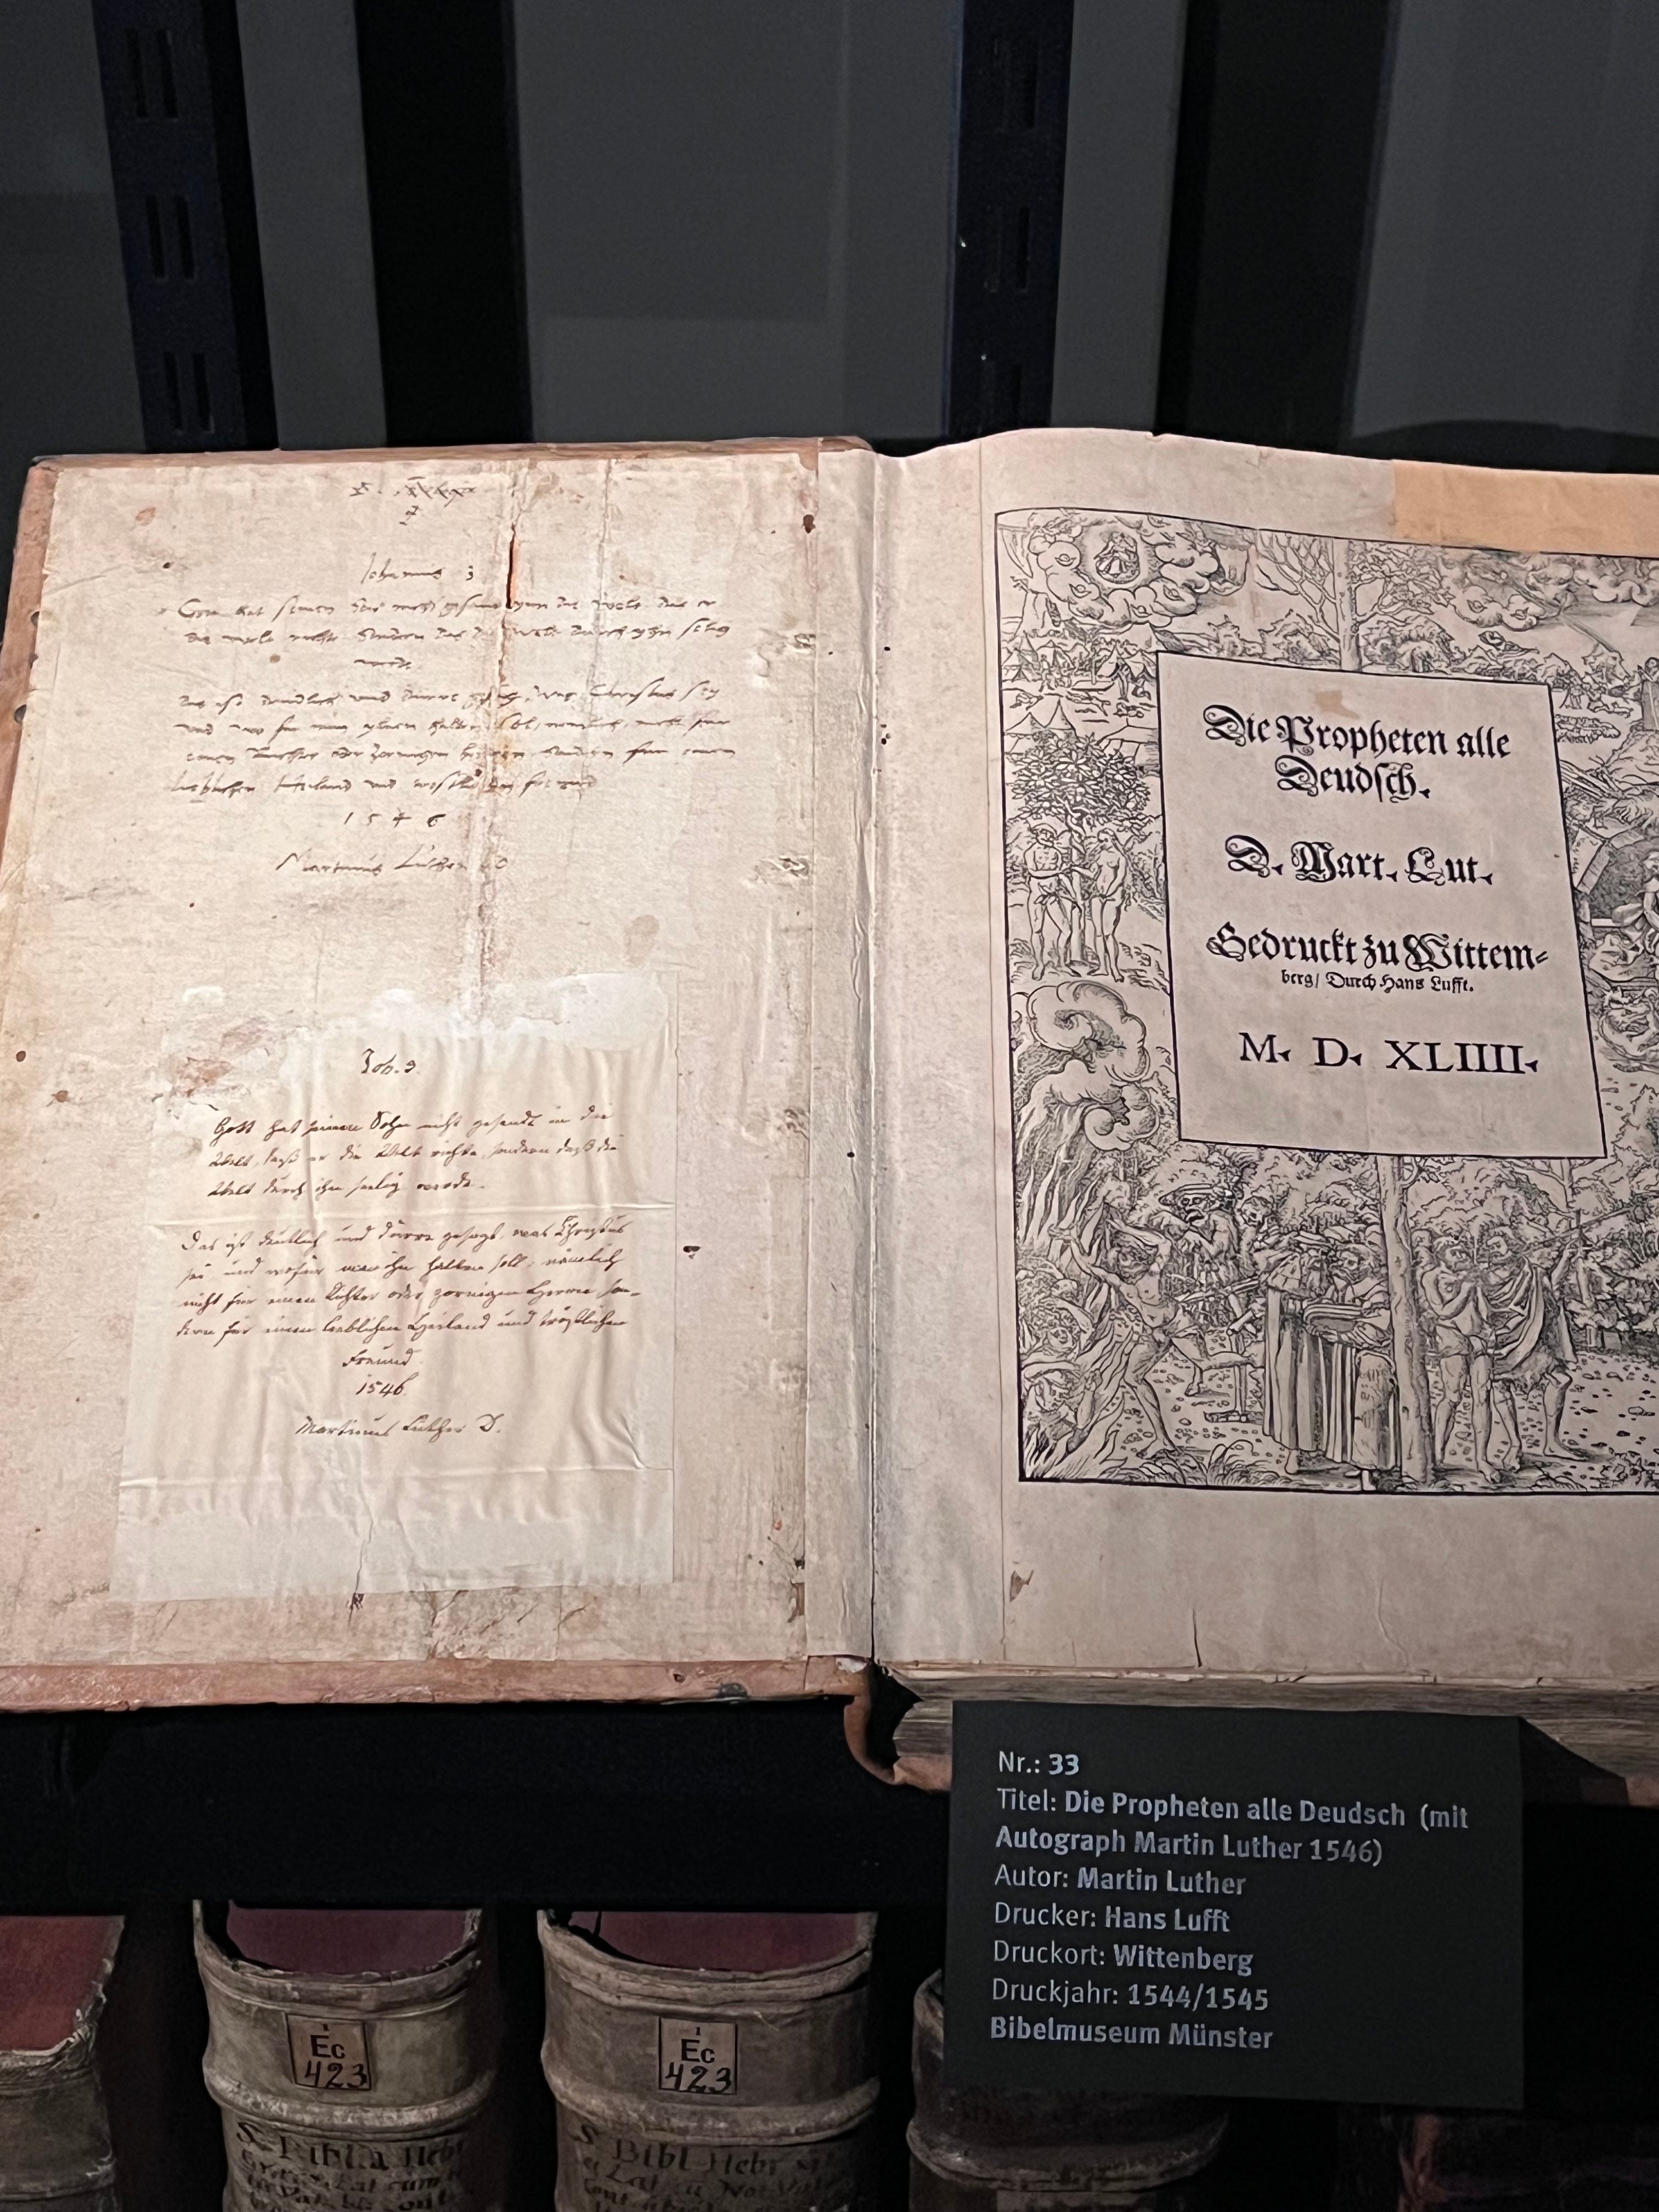 Johannis 3
Gott hat seinen Son nicht gesand ynn die Welt, das er
die welt richte Sondern das die Welt durch yhn selig
werde.
Das ist deudlich und durre gesagt, was Christus sey
und wo fur man yhnen halten sol, nemlich, nicht fur
einen Richter oder zornigen herren, Sondern fur einen
lieblichen Heiland und trostlichen freund
1546
Martinus Luther D
Joh. 3.
Gott hat seinen Sohn nicht gesandt in die
Welt, daß er die Welt richte, sondern daß die
Welt durch ihn seelig werde.
Das ist deutlich und dürre gesagt, was Christus
sei und wofür man ihn halten soll, nämlich
nicht für einen Richter oder zornigen Herren son-
dern für einen lieblichen Heiland und tröstlichen
Freund.
1546.
Martinus Luther D.
Die Propheten alle
Deudsch.
D. Mart. Lut.
Gedruckt zu Wittem-
berg/ Durch Hans Lufft.
M. D. XLIIII.
Nr.: 33
Titel: Die Propheten alle Deudsch (mit
Autograph Martin Luther 1546)
Autor: Martin Luther
Drucker: Hans Lufft
Druckort: Wittenberg
Druckjahr: 1544/1545
Bibelmuseum Münster
1
Ec
423
1
Ec
423
S. Biblia Hebr
S. Bibl Hebr